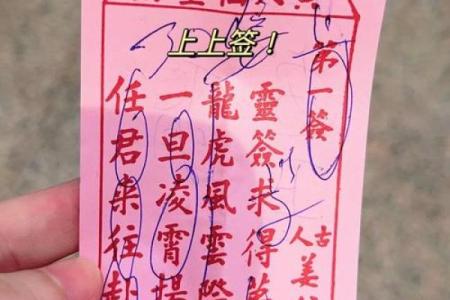 上上签！
第一簽
古人姜
靈簽求得
龍虎風雲際
一旦凌霄揚
任君来往朝